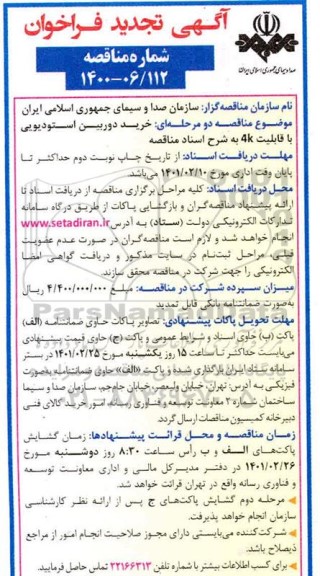 آگهی تجدید فراخوان
شماره مناقصه
۱۴۰۰-۰۶/۱۱۲
صدا و سیمای جمهوری اسلامی ایران
نام سازمان مناقصه‌گزار: سازمان صدا و سیمای جمهوری اسلامی ایران
موضوع مناقصه دو مرحله‌ای: خرید دوربین استودیویی
با قابلیت 4k به شرح اسناد مناقصه
مهلت دریافت اسناد: از تاریخ چاپ نوبت دوم حداکثر تا
پایان وقت اداری مورخ ۱۴۰۱/۰۲/۱۰ می‌باشد.
محل دریافت اسناد: کلیه مراحل برگزاری مناقصه از دریافت اسناد تا
ارائه پیشنهاد مناقصه‌گران و بازگشایی پاکات از طریق درگاه سامانه
تدارکات الکترونیکی دولت (ستاد) به آدرس www.setadiran.ir
انجام خواهد شد و لازم است مناقصه‌گران در صورت عدم عضویت
قبلی، مراحل ثبت‌نام در سایت مذکور و دریافت گواهی امضا
الکترونیکی را جهت شرکت در مناقصه محقق سازند.
میزان سپرده شرکت در مناقصه: مبلغ ۴/۴۰۰/۰۰۰/۰۰۰ ریال
به‌صورت ضمانتنامه بانکی قابل تمدید
مهلت تحویل پاکات پیشنهادی: تصاویر پاکات حاوی ضمانتنامه (الف)
پاکت (ب) حاوی اسناد و شرایط عمومی و پاکت (ج) حاوی قیمت پیشنهادی
می‌بایست حداکثر تا ساعت ۱۵ روز یکشنبه مورخ ۱۴۰۱/۰۲/۲۵ در بستر
سامانه ستاد ایران بارگذاری شده و پاکت «الف» حاوی ضمانتنامه به‌صورت
فیزیکی به آدرس: تهران، خیابان ولیعصر، خیابان جام‌جم، سازمان صدا و سیما
ساختمان شماره ۲ معاونت توسعه و فناوری رسانه، امور خرید کالای فنی
دبیرخانه کمیسیون مناقصات ارسال گردد.
زمان مناقصه و محل قرائت پیشنهادها: زمان گشایش
پاکت‌های الف و ب رأس ساعت ۸:۳۰ روز دوشنبه مورخ
۱۴۰۱/۰۲/۲۶ در دفتر مدیرکل مالی و اداری معاونت توسعه
و فناوری رسانه واقع در تهران قرائت خواهد شد.
مرحله دوم گشایش پاکت‌های ج پس از ارائه نظر کارشناسی
سازمان انجام خواهد پذیرفت.
شرکت‌کننده می‌بایستی دارای مجوز صلاحیت انجام امور از مراجع
ذیصلاح باشد.
برای کسب اطلاعات بیشتر با شماره تلفن ۲۲۱۶۶۳۱۳ تماس حاصل فرمایید.